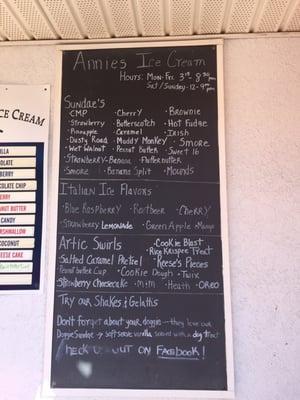 Annies Ice Cream
Hours: Mon-Fri 3
Sat/Sunday - 12-9pm
Sundae's
CMP Cherry Brownie
Strawberry Butterscotch Hot Fudge
Pineapple Caramel Irish
Dusty Road Muddy Monkey Smore
Wet Walnut Peanut Butter Sweet 16
Strawberry-Banana Flutternutter
Smore Banana Split Mounds
Italian Ice Flavors
Blue Raspberry Rootbeer Cherry
Strawberry Lemonade Green Apple Mango
Artic Swirls Cookie Blast
Rice Krispie Treat
Salted Caramel Pretzel Reese's Pieces
Peanut butter Cup Cookie Dough Twix
Strawberry Cheesecake M+M Heath OREO
Try our Shakes & Gelatis
Don't forget about your doggie - they love our
Doggie Sundae -> soft serve vanilla served with a dog treat
heck us out on Facebook!
CE CREAM
LLA
OLATE
BERRY
OLATE CHIP
ERRY
NUT BUTTER
CANDY
RSHMALLOW
COCONUT
EESE CAKE